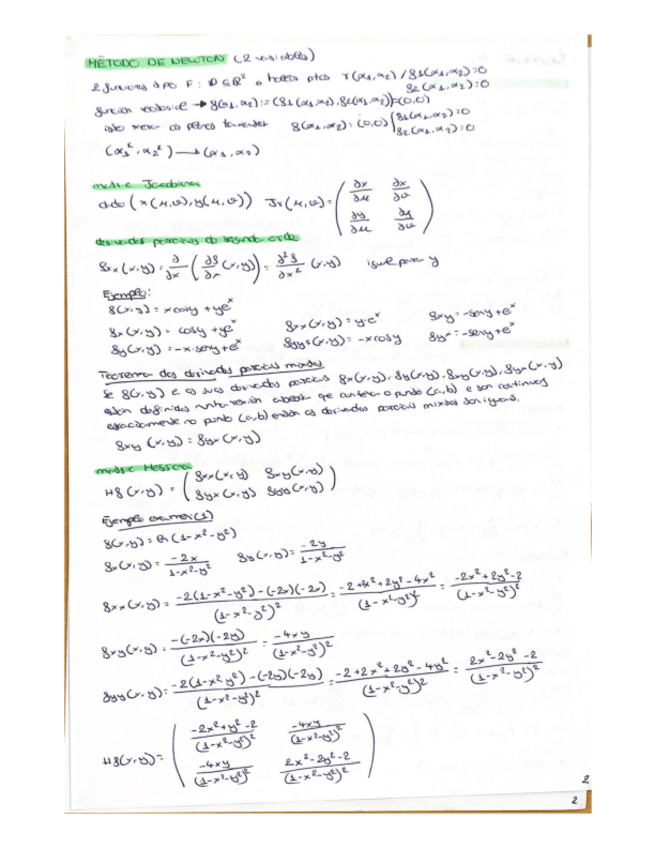 MÉTODO DE NEWTON (2 variables)
2 funciones tipo F: D⊆ℝ² a hallar ptos r(α₁,α₂) / g₁(α₁,α₂)=0
g₂(α₁,α₂)=0
función vectorial → g(α₁,α₂):=(g₁(α₁,α₂),g₂(α₁,α₂))=(0,0)
g(α₁,α₂)=(0,0) { g₁(α₁,α₂)=0
g₂(α₁,α₂)=0
(α₁ᵏ,α₂ᵏ) → (α₁,α₂)
matriz Jacobiana
dado (x(u,v),y(u,v)) Jr(u,v)= ( ∂x/∂u ∂x/∂v
∂y/∂u ∂y/∂v )
derivadas parciais de segunda orde
gxx(x,y)= ∂/∂x (∂g/∂x (x,y)) = ∂²g/∂x² (x,y) igual para y
Ejemplo:
g(x,y)= xcosy + yeˣ
gx(x,y)= cosy + yeˣ gxx(x,y)= y·eˣ gxy=-seny+eˣ
gy(x,y)= -x·seny+eˣ gyy(x,y)= -xcosy gyx=-seny+eˣ
Teorema das derivadas parciais mixtas
Se g(x,y) e as suas derivadas parciais gx(x,y), gy(x,y), gxy(x,y), gyx(x,y)
están definidas nunha rexión aberta que conteña o punto (a,b) e son continuas
exactamente no punto (a,b) entón as derivadas parciais mixtas son iguais.
gxy(x,y) = gyx(x,y)
matriz Hessiana
Hg(x,y) = ( gxx(x,y) gxy(x,y)
gyx(x,y) gyy(x,y) )
Ejemplo examen(1)
g(x,y)= ln(1-x²-y²)
gx(x,y)= -2x/(1-x²-y²) gy(x,y)= -2y/(1-x²-y²)
gxx(x,y)= (-2(1-x²-y²)-(-2x)(-2x))/(1-x²-y²)² = (-2+2x²+2y²-4x²)/(1-x²-y²)² = (-2x²+2y²-2)/(1-x²-y²)²
gxy(x,y)= (-(-2x)(-2y))/(1-x²-y²)² = -4xy/(1-x²-y²)²
gyy(x,y)= (-2(1-x²-y²)-(-2y)(-2y))/(1-x²-y²)² = (-2+2x²+2y²-4y²)/(1-x²-y²)² = (2x²-2y²-2)/(1-x²-y²)²
Hg(x,y)= ( (-2x²+y²-2)/(1-x²-y²)² -4xy/(1-x²-y²)²
-4xy/(1-x²-y²)² (2x²-2y²-2)/(1-x²-y²)² )
2
2